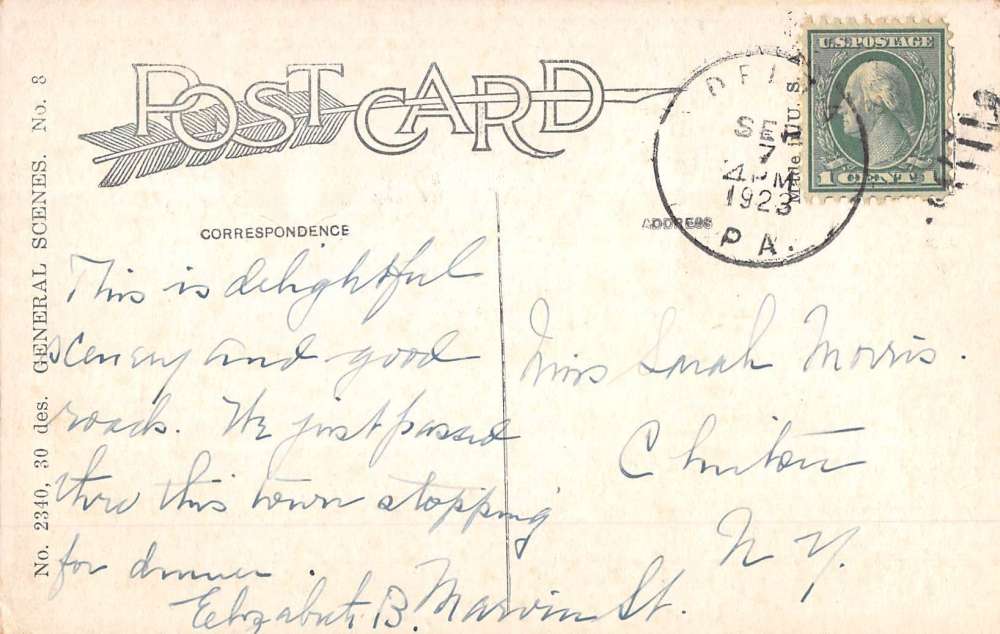 POST CARD
No. 2340, 30 des. GENERAL SCENES. No. 8
CORRESPONDENCE
ADDRESS
U.S. POSTAGE
1 CENT 1
Made in U. S. A.
SEP
7
4 PM
1923
PA.
This is delightful
scenery and good
roads. We just passed
thro this town stopping
for dinner.
Elizabeth B.
Miss Sarah Morris.
Clinton
N Y.
Marvin St.